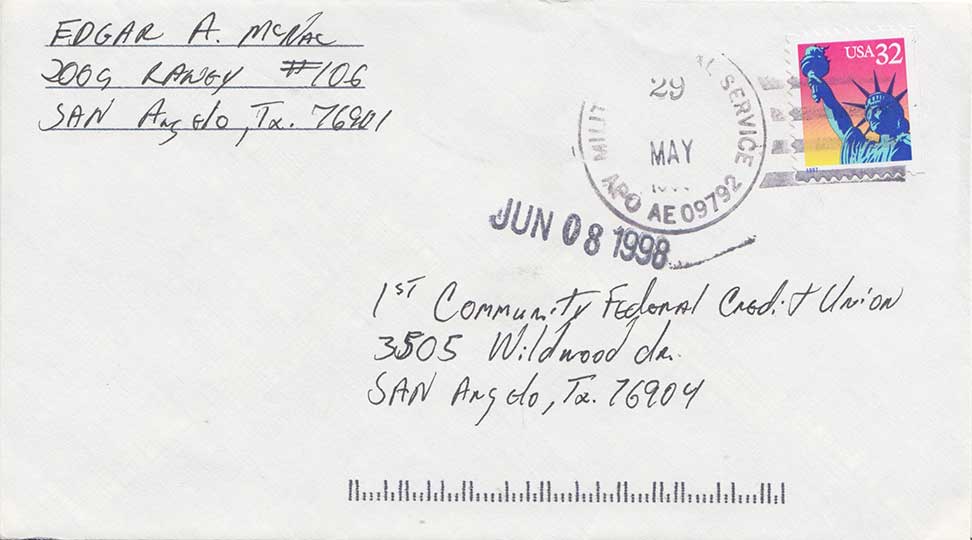 EDGAR A. McNac
2009 RANEY #106
SAN Angelo, Tx. 76901
USA 32
1997
29
MILIT AL SERVICE
MAY
APO AE 09792
JUN 08 1998
1ST Community Federal Credit Union
3505 Wildwood dr.
SAN Angelo, Tx. 76904